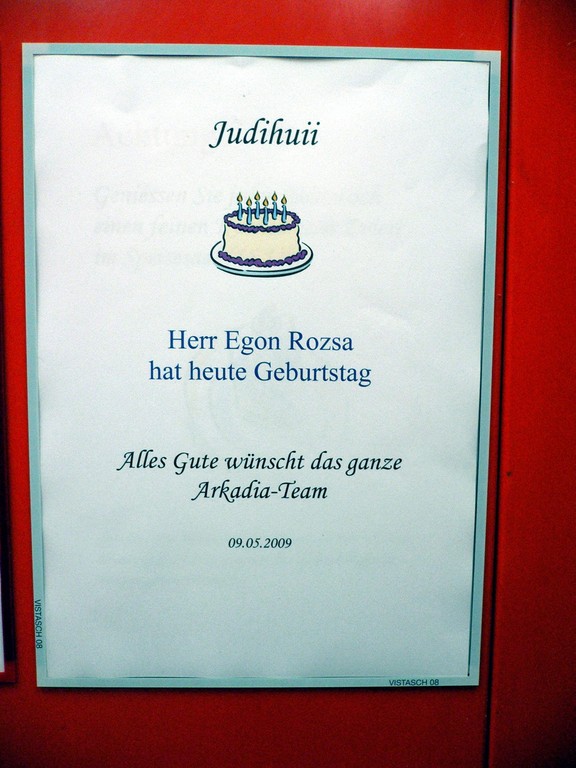 Judihuii
Herr Egon Rozsa
hat heute Geburtstag
Alles Gute wünscht das ganze
Arkadia-Team
09.05.2009
VISTASCH 08
VISTASCH 08